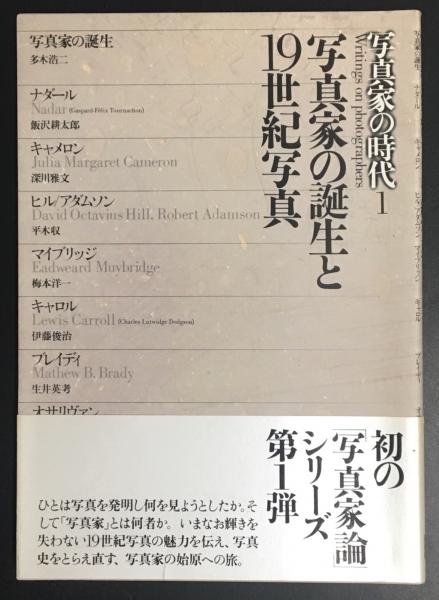 写真家の時代1
Writings on photographers
写真家の誕生と
19世紀写真
写真家の誕生
多木浩二
ナダール
Nadar (Gaspard-Félix Tournachon)
飯沢耕太郎
キャメロン
Julia Margaret Cameron
深川雅文
ヒル/アダムソン
David Octavius Hill, Robert Adamson
平木収
マイブリッジ
Eadweard Muybridge
梅本洋一
キャロル
Lewis Carroll (Charles Lutwidge Dodgson)
伊藤俊治
ブレイディ
Mathew B. Brady
生井英考
オサリヴァン
初の
「写真家論」
シリーズ
第1弾
ひとは写真を発明し何を見ようとしたか。そ
して「写真家」とは何者か。いまなお輝きを
失わない19世紀写真の魅力を伝え、写真
史をとらえ直す、写真家の始原への旅。
写真家の誕生
ナダール
キャメロン
ヒル/アダムソン
マイブリッジ
キャロル
ブレイディ